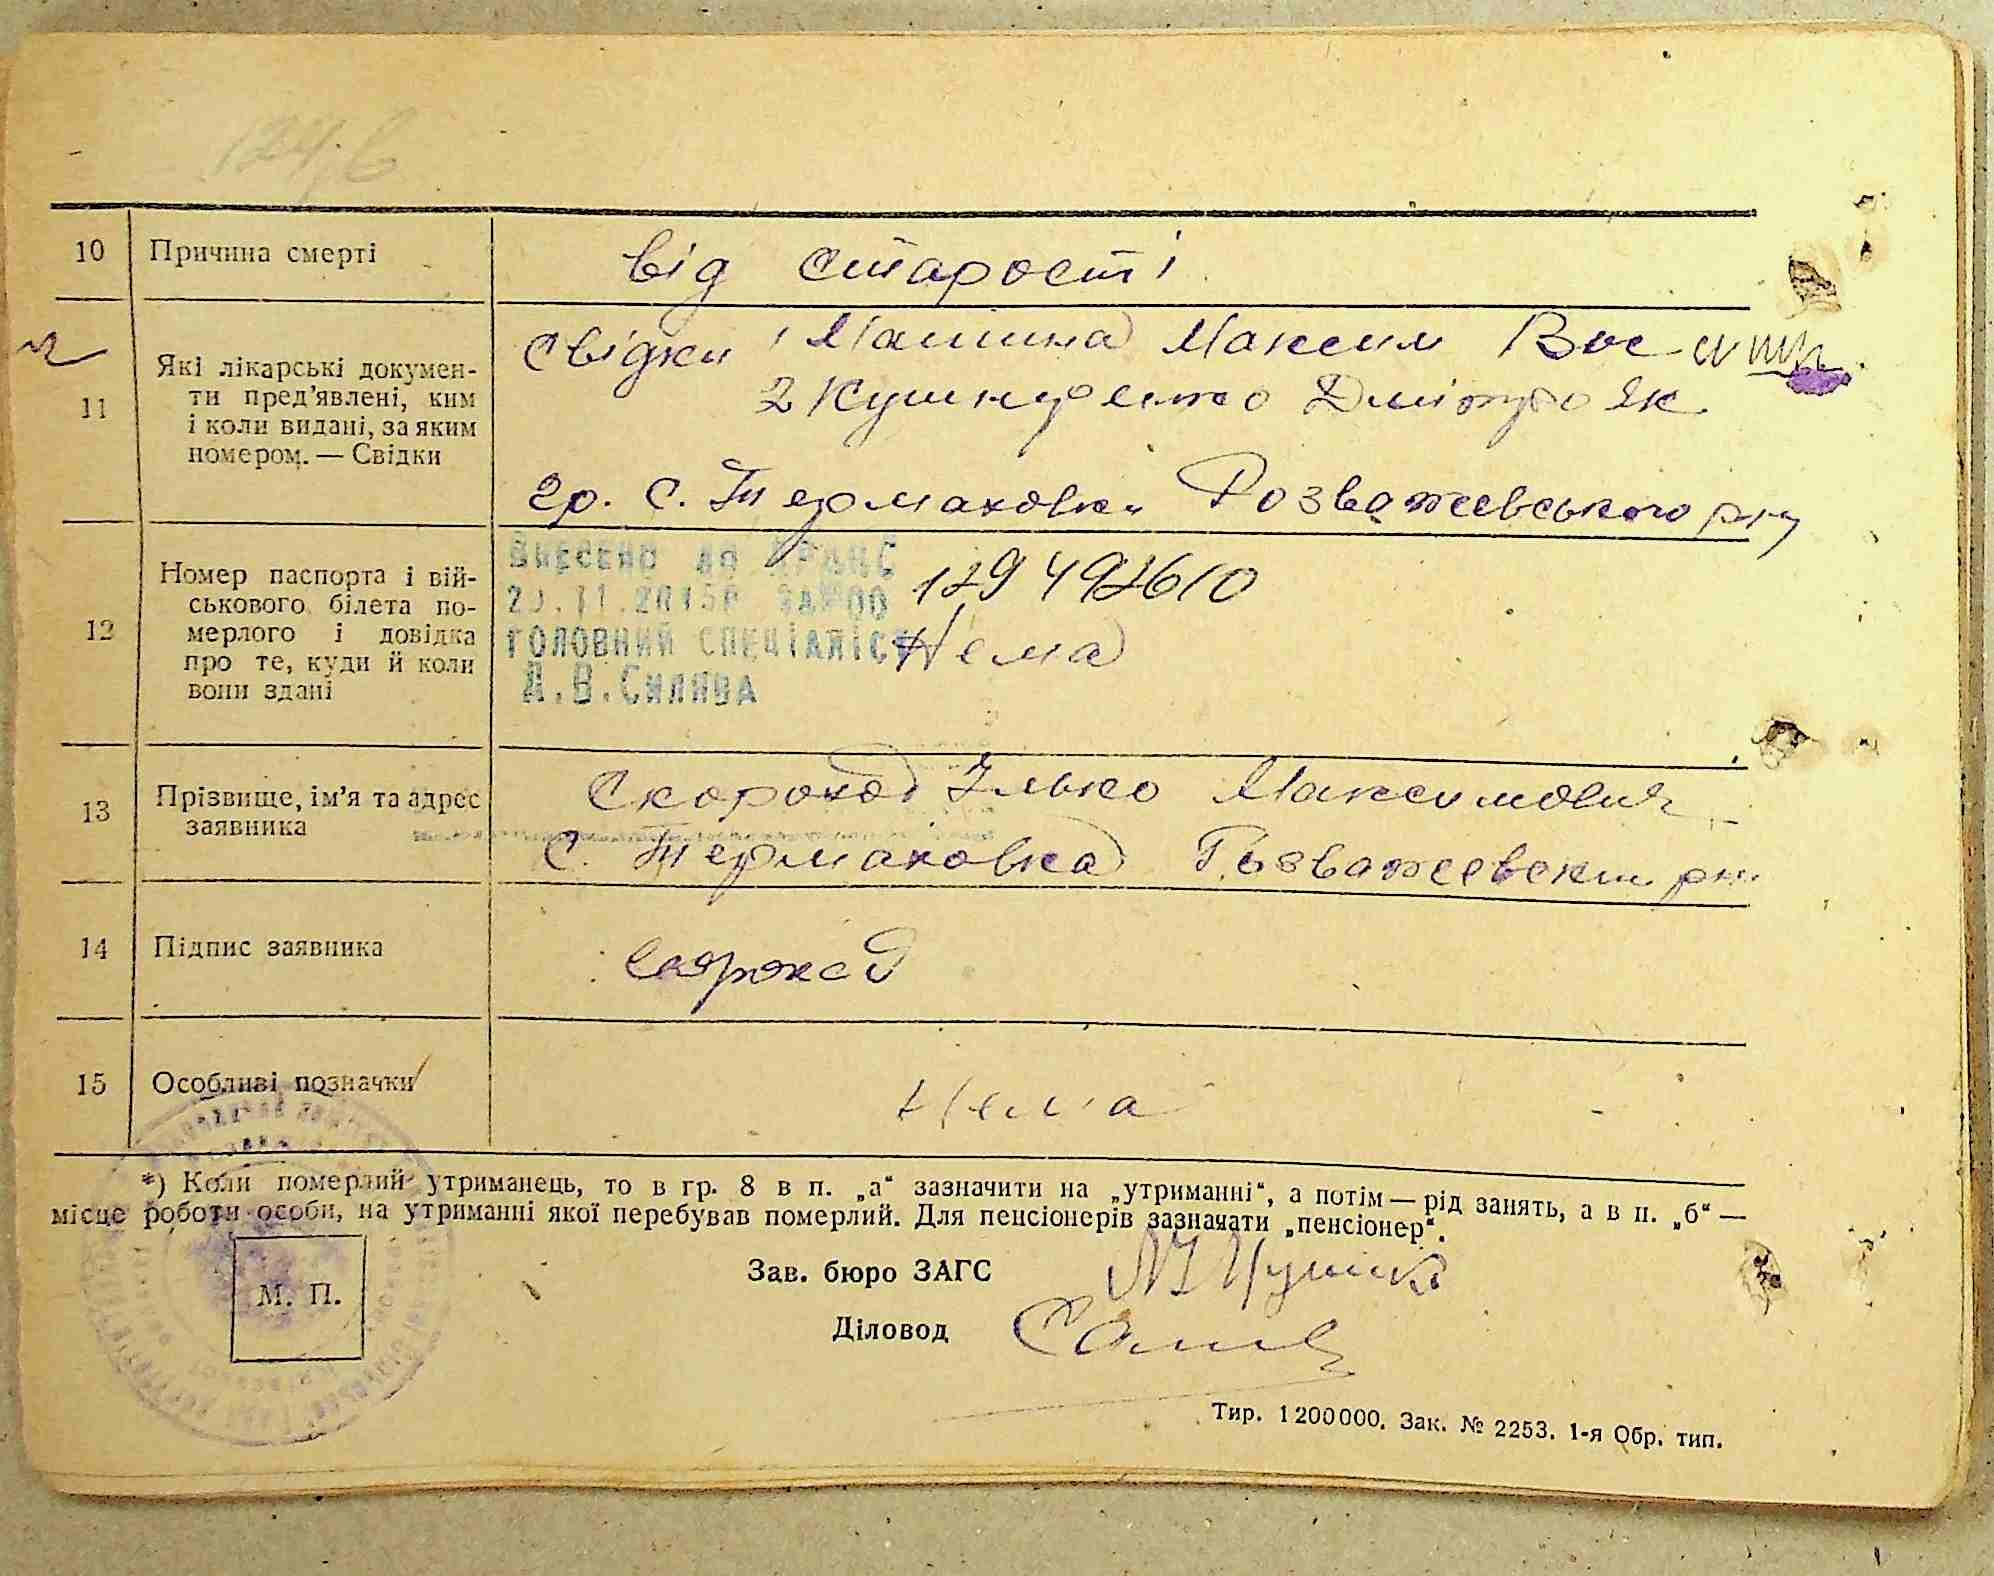 10 Причина смерті від старості
11 Які лікарські докумен-
ти пред'явлені, ким
і коли видані, за яким
номером. — Свідки
Свідки 1 Машина Максим Вас
2 Кушнуренко Дмітро Як
гр. с. Термаховки Розважевського р-ну
12 Номер паспорта і вій-
ськового білета по-
мерлого і довідка
про те, куди й коли
вони здані
Внесено до
ГОЛОВНИЙ СПЕЦІАЛІСТ
Нема
13 Прізвище, ім'я та адрес
заявника
Скороход Ілько Максимович
с. Термаховка Розважевский р-н
14 Підпис заявника Скороход
15 Особливі позначки Нема
*) Коли померлий утриманець, то в гр. 8 в п. „а“ зазначити на „утриманні“, а потім — рід занять, а в п. „б“ —
місце роботи особи, на утриманні якої перебував померлий. Для пенсіонерів зазначати „пенсіонер“.
Зав. бюро ЗАГС
М. П.
Діловод
Тир. 1200000. Зак. № 2253. 1-я Обр. тип.